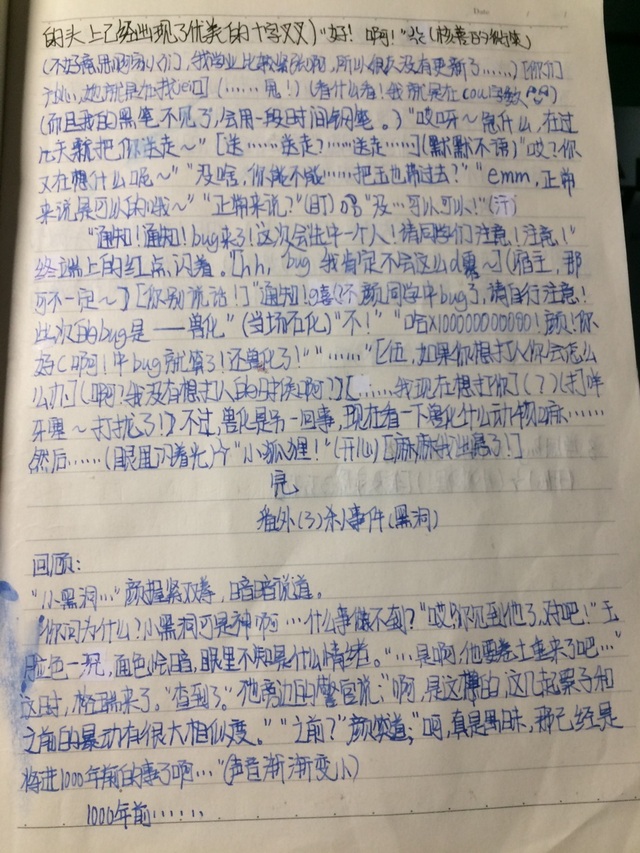 的头上已经出现了优美的十字叉叉)"好！啊！"(核善的微笑)
(不好意思啊家人们，我学业比较紧张啊，所以很久没有更新了……)[你们
(……鬼！)(看什么看！我就是在cou字数
(而且我的黑笔不见了，会用一段时间钢笔。)"哎呀～急什么，在过
几天就把你送走～"[送……送走？……送走……](默默不语)"哎？你
又在想什么呢～""没啥，你能不能……把玉也带过去？""emm，正常
来说是可以的哦～""正常来说？"(盯)"没…可以可以！"(汗)
"通知！通知！bug来了！这次会出中一个人！请同学们注意！注意！"
终端上的红点，闪着。"[hh，bug 我肯定不会这么d霉～](宿主，那
可不一定～)[你别说话！]"通知！颜同学中bug了，请自行注意！
此次的bug是——兽化"(当场石化)"不！""哈x10000000000！颜！你
好C啊！中bug就算了！还兽化了！""……"[伍，如果你想打人你会怎么
么办](啊？我没有想打人的时候啊？)[……我现在想打你](？)(打咩
～打扰了！)不过，兽化是另一回事，现在看一下兽化什么动物
然后……(眼里闪着光)"小狐狸！"(开心)[麻麻我出息了！]
完
番外(3)杀人事件(黑洞)
回顾：
"小黑洞…"颜握紧双拳，暗暗说道。
"你问为什么？小黑洞可是神啊…什么事做不到？"哎别说到他了，对吧！"玉
脸色一，面色阴暗，眼里不知是什么情绪。"…是啊，他要卷土重来了吧…"
这时，格瑞来了。"查到了。"他旁边的警官说；"啊，是这样的，这几起案子和
之前的暴动有很大相似度。""之前？"颜烦道；"啊，真是冒昧，那已经是
将进1000年前的事了啊…"(声音渐渐变小)
1000年前……